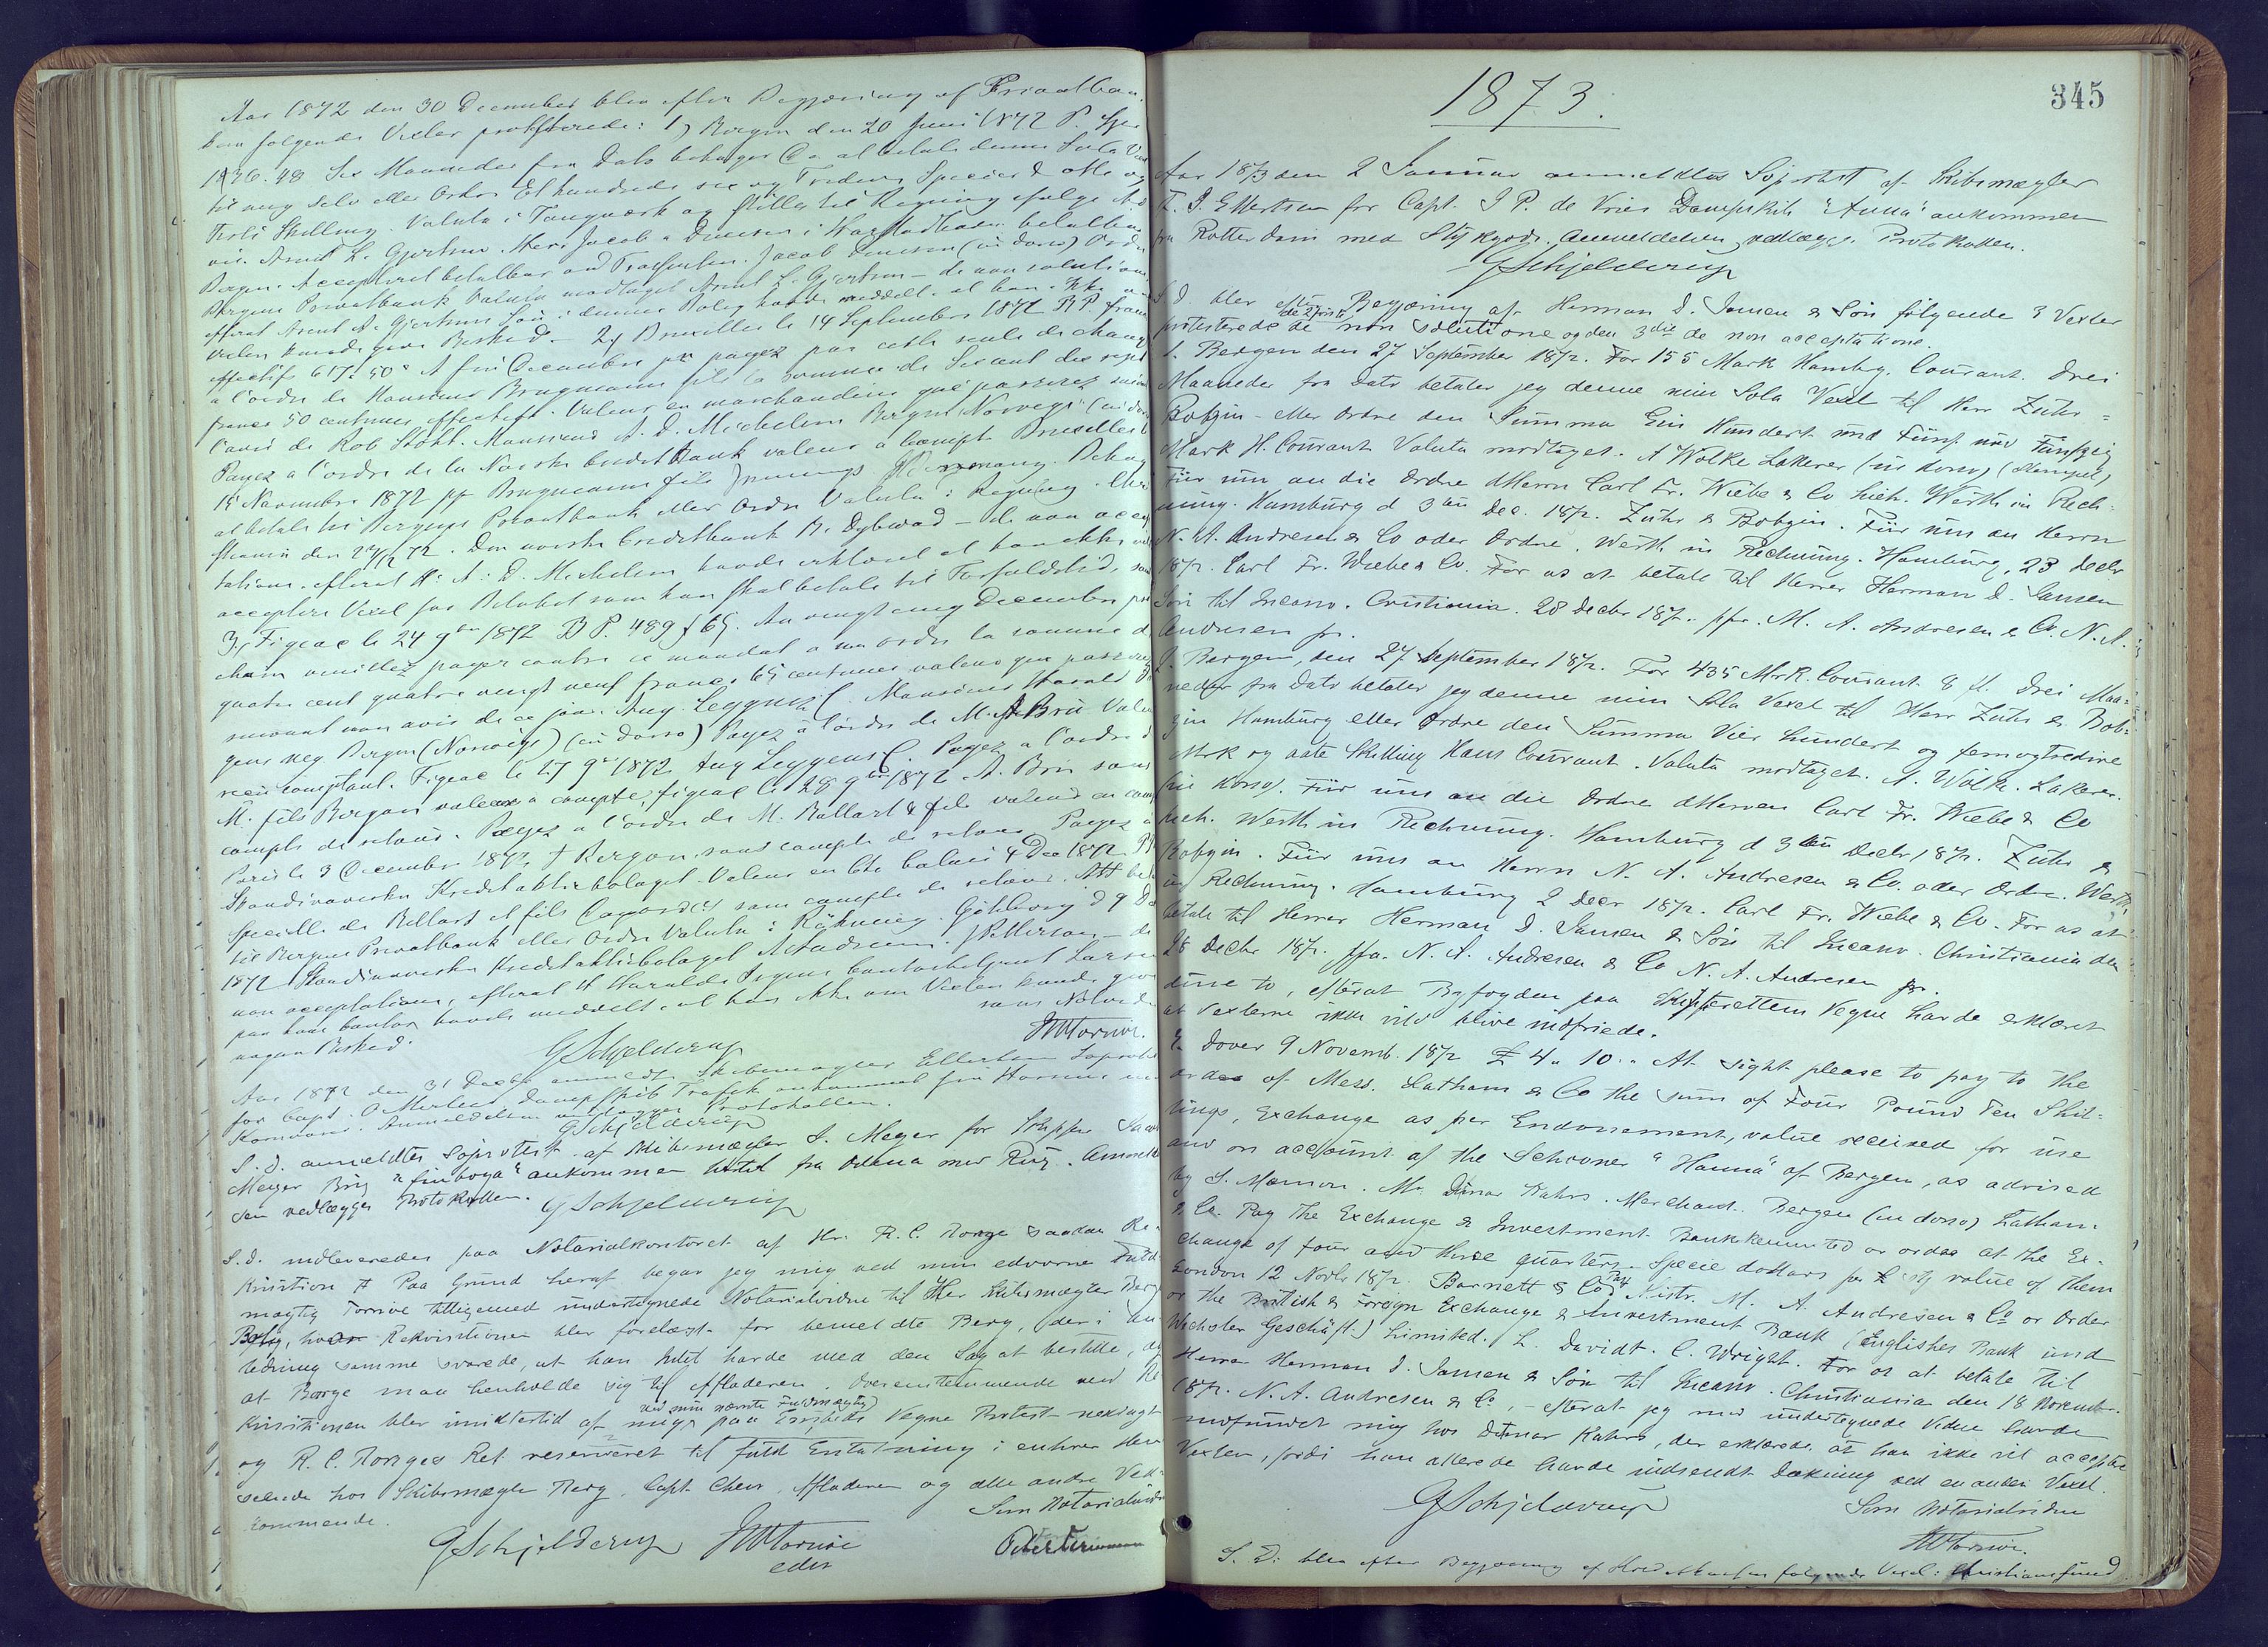 Aar 1872 den 30 December blev efter Begjæring af Privatban-
ken følgende Vexler protesterede: 1) Bergen den 20 Juni 1872 P. Spr
136. 48 Sex Maaneder fra Dato behager De at betale denne Sola Vex
til mig selv eller Ordre Et hundrede sex og Tredive Species & otte og
Firti Skilling. Valuta i Tougværk og stilles til Regning ifølge A
vis. Arent L. Gjertsen. Herr Jacob Denesen i
Bergen. Accepteret betalbar Jacob Denesen (in dorso) Ordre
Bergens Privatbank Valuta modtaget Arent L. Gjertsen — de non solutione
efterat Arent L. Gjertsens Søn i dennes Bolig havde meddelt at han ikke om
Vexlen kunde give Besked. — 2) Bruxelles le 14 Septembre 1872 B.P. francs
effectifs 617. 50 c A fin Decembre payez par cette seule de change
a l'ordre de Monsieur Brugmann fils la somme de Six cent dix sept
francs 50 centimes effectifs. Valeur en marchandises que passerez suivant
l'avis de Rob Stohl. Monsieur A. D. Michelsen Bergen Norwege (in dorso
Payez a l'ordre de la Norske Creditbank valeur à compte Bruxelles
15 Novembre 1872 pp Brugmann fils Behag
at betale til Bergens Privatbank eller Ordre Valuta i Regning. Chri
stiania den 27/12 72. Den norske Creditbank N. Dybwad — de non accep
tatione, efterat Hr A. D. Michelsen havde erklæret at han ikke
acceptere Vexel for Beløbet som han skal betale til Forfaldstid,
3, Figeac le 24 9bre 1872 B P. 489 f 65. Au vingt cinq Decembre pro
chain veuillez payer contre ce mandat a mon ordre la somme de
quatre cent quatre vingt neuf francs 65 centimes valeur que passerez
suivant mon avis de ce jour. Aug. Leygues C. Monsieur Harald
gens neg Bergen (Norwege) (in dorso) Payez à l'ordre de M. A Brü Valeur
recu comptant. Figeac le 27 9bre 1872 Aug Leygues C. Payez a l'ordre d
M. fils Bergon valeur a compte, figeac le 28 9bre 1872 A. Brü sans
compte de retour. Payez a l'ordre de M. Ballart & fils valeur en compte
Paris le 3 Decembre 1872 Bergon, sans compte de retour Payez à
Skandinaviska Kreditaktiebolaget. Valeur en Cte Calais 4 Dec 1872 P
speciille de Bellart et fils sans compte de retour. Att be
til Bergens Privatbank eller Ordre Valuta i Räkning. Götheborg d 9 De
1872 Skandinaviska Kreditaktiebolaget Pettersson — de
non acceptatione, efterat H Haralds Irgens Contorbetjent Larsen
paa hans Contor havde meddelt, at han ikke om Vexlen kunde give
nogen Besked.
som Notvidne
GSchjelderup
Aar 1872 den 31 Decbr anmeldte Skibsmægler Ellertsen Søprotest
for Capt. O Merlees Dampskib Trafik ankommet fra Horsens med
Kornvarer. Anmeldelsen vedlægges Protokollen.
GSchjelderup
S. D. anmeldtes Søprotest af Skibsmægler J. Meyer for Skipper Jacob
Meyer Brig "finboga" ankommen hertil fra Odessa med Rug. Anmeldel
sen vedlægges Protokollen. GSchjelderup
S. D. indleveredes paa Notarialkontoret af Hr. R. C. Ronge saadan Re-
kvisition # Paa Grund heraf begav jeg mig ved min edsvorne Fuld-
mægtig Tornøe tilligemed undertegnede Notarialvidne til Hr Skibsmægler Berg
Bolig, hvor Rekvisitionen blev forelagt for bemeldte Berg, der i An
ledning samme svarede, at han Intet havde med den Sag at bestille, og
at Borge maa henholde sig til Afladeren. Overensstemmende med Re
kvisitionen blev imidlertid af mig (ved min nævnte Fuldmægtig) paa Embeds Vegne Protest nedlagt
og R. C. Ronges Ret reserveret til fuld Erstatning i enhver Hen
seende hos Skibsmægler Berg, Capt. Chew, Afladeren og alle andre Ved-
kommende.
Som Notarialvidne
GSchjelderup Tornøe
edsv

1873.
345
Aar 1873 den 2 Januar anmeldtes Søprotest af Skibsmægler
T. J. Ellertsen for Capt. J P. de Vries Dampskib "Anna" ankommen
fra Rotterdam med Stykgods. Anmeldelsen vedlægges Protokollen.
GSchjelderup
S. D. blev efter Begjæring af Herman D. Jansen & Søn følgende 3 Vexler
protesterede de 2 første de non solutione og den 3die de non acceptatione.
1. Bergen den 27 September 1872. For 155 Mark Hambrg. Courant. Drei
Maaneder fra Dato betaler jeg denne min Sola Vexel til Herr Zuhr =
Bobzin - eller Ordre den Summa Ein Hundert und Fünf und Fünfzig
Mark H. Courant Valuta modtaget. A Wolke Lakerer (in dorso) (Stempel)
Für uns an die Ordre dHerrn Carl Fr. Wiebe & Co hieh. Werth in Rech-
nung. Hamburg d 3ten Dec. 1872. Zuhr & Bobzin. Für uns an Herrn
N. A. Andresen & Co oder Ordre. Werth in Rechnung. Hamburg, 23 Decbr
1872. Carl Fr. Wiebe & Co. For os at betale til Herrer Herman D. Jansen
Søn til Incasso. Cristiania. 28 Decbr 1872. ppr. M. A. Andresen & Co. N. A.
Andresen jr.
2. Bergen, den 27 September 1872. For 435 MrK. Courant. 8 ß. Drei Maa-
neder fra Dato betaler jeg denne min Sola Vexel til Herr Zuhr & Bob-
zin Hamburg eller Ordre den Summa Vier hundert og femogtredive
Mrk og aate Skilling Hans Courant. Valuta modtaget. A. Wolk. Lakerer.
(in dorso). Für uns an die Ordre dHerren Carl Fr. Wiebe & Co
hieh. Werth in Rechnung. Hamburg d 3ten Decbr 1872. Zuhr &
Bobzin. Für uns an Herrn N. A. Andresen & Co. oder Ordre. Werth
in Rechnung. Hamburg 2 Decr 1872. Carl Fr. Wiebe & Co. For os at
betale til Herrer Herman D. Jansen & Søn til Incasso. Christiania den
28 Decbr 1872. ppa. N. A. Andresen & Co N. A. Andresen jr.
disse to, efterat Byfogden paa Skifterettens Vegne havde erklæret
at Vexlerne ikke vild blive indfriede.
3. Dover 9 Novemb. 1872 £ 4 " 10 " At sight please to pay to the
order of Mess. Latham & Co the sum of Four Pound Ten Shil-
lings, Exchange as per Endorsement, value received for use
and on account of the Schooner "Hanna" of Bergen, as advised
by S. Monson. Mr. Ditmar Kahrs. Merchant. Bergen (in dorso) Latham
& Co. Pay the Exchange & Investment Bank limited or order at the Ex-
change of four and three quarters Specie dollars per £ stg value of them
London 12 Novbr 1872. Barnett & Co. Pay Mistr. M. A. Andresen & Co or Order
or the British & Foreign Exchange & Investment Bank (Englisher Bank und
Wechsler Geschäft.) Limited. L. Davidt. C. Wright. For os at betale til
Herrer Herman D. Jansen & Søn til Incasso. Christiania den 18 Novemb-
1872. N. A. Andresen & Co, - efterat jeg med undertegnede Vidne havde
indfundet mig hos Ditmar Kahrs, der erklærede at han ikke vil acceptere
Vexlen, fordi han allerede havde indsendt Dækning ved en anden Vexel.
GSchjelderup
Som Notarialvidne
Tornøe.
S. D. blev efter Begjæring af Kreditbanken følgende Vexel: Christianssund